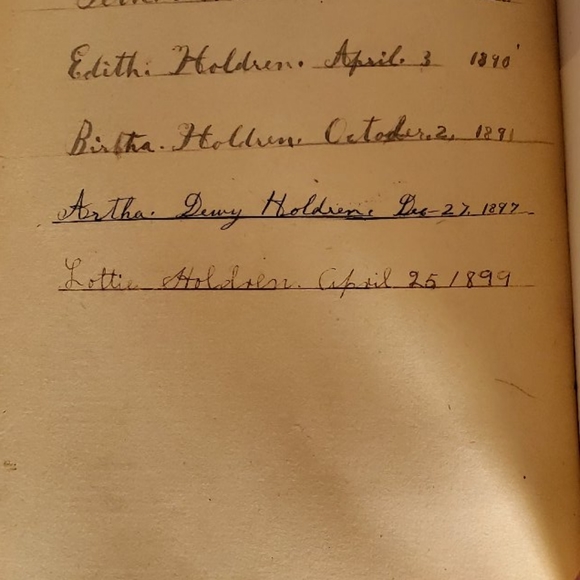 Edith. Holdren. April. 3 1890
Birtha. Holdren. October. 2, 1891
Artha. Dewy Holdren. Dec-27, 1897
Lottie Holdren. April 25 1899